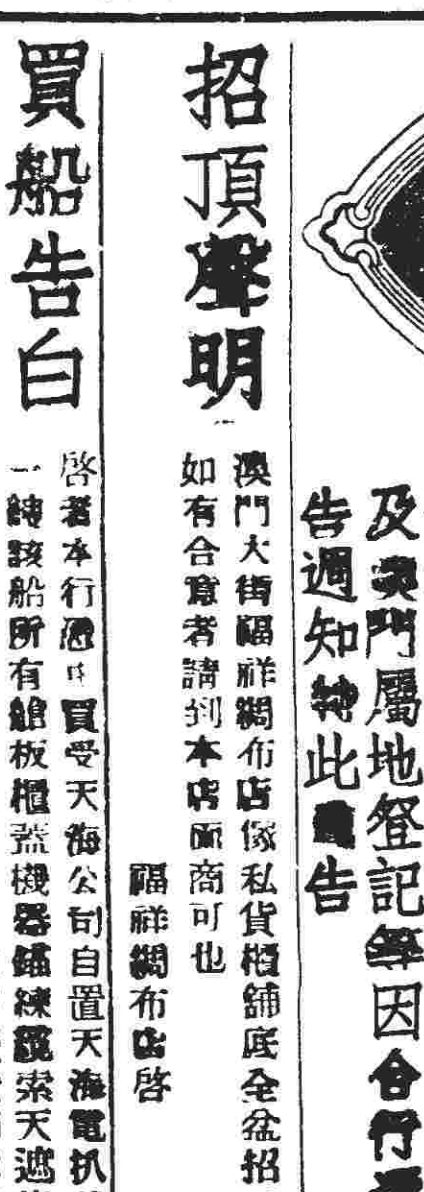 及澳門屬地登記等因合行
告週知特此告
招頂聲明
澳門大街福祥綢布店傢私貨櫃舖底全盆招
如有合意者請到本店面商可也
福祥綢布店啓
買船告白
啓者本行憑中買受天海公司自置天海電扒
一艘該船所有舢板櫃蓋機器錨練纜索天遮